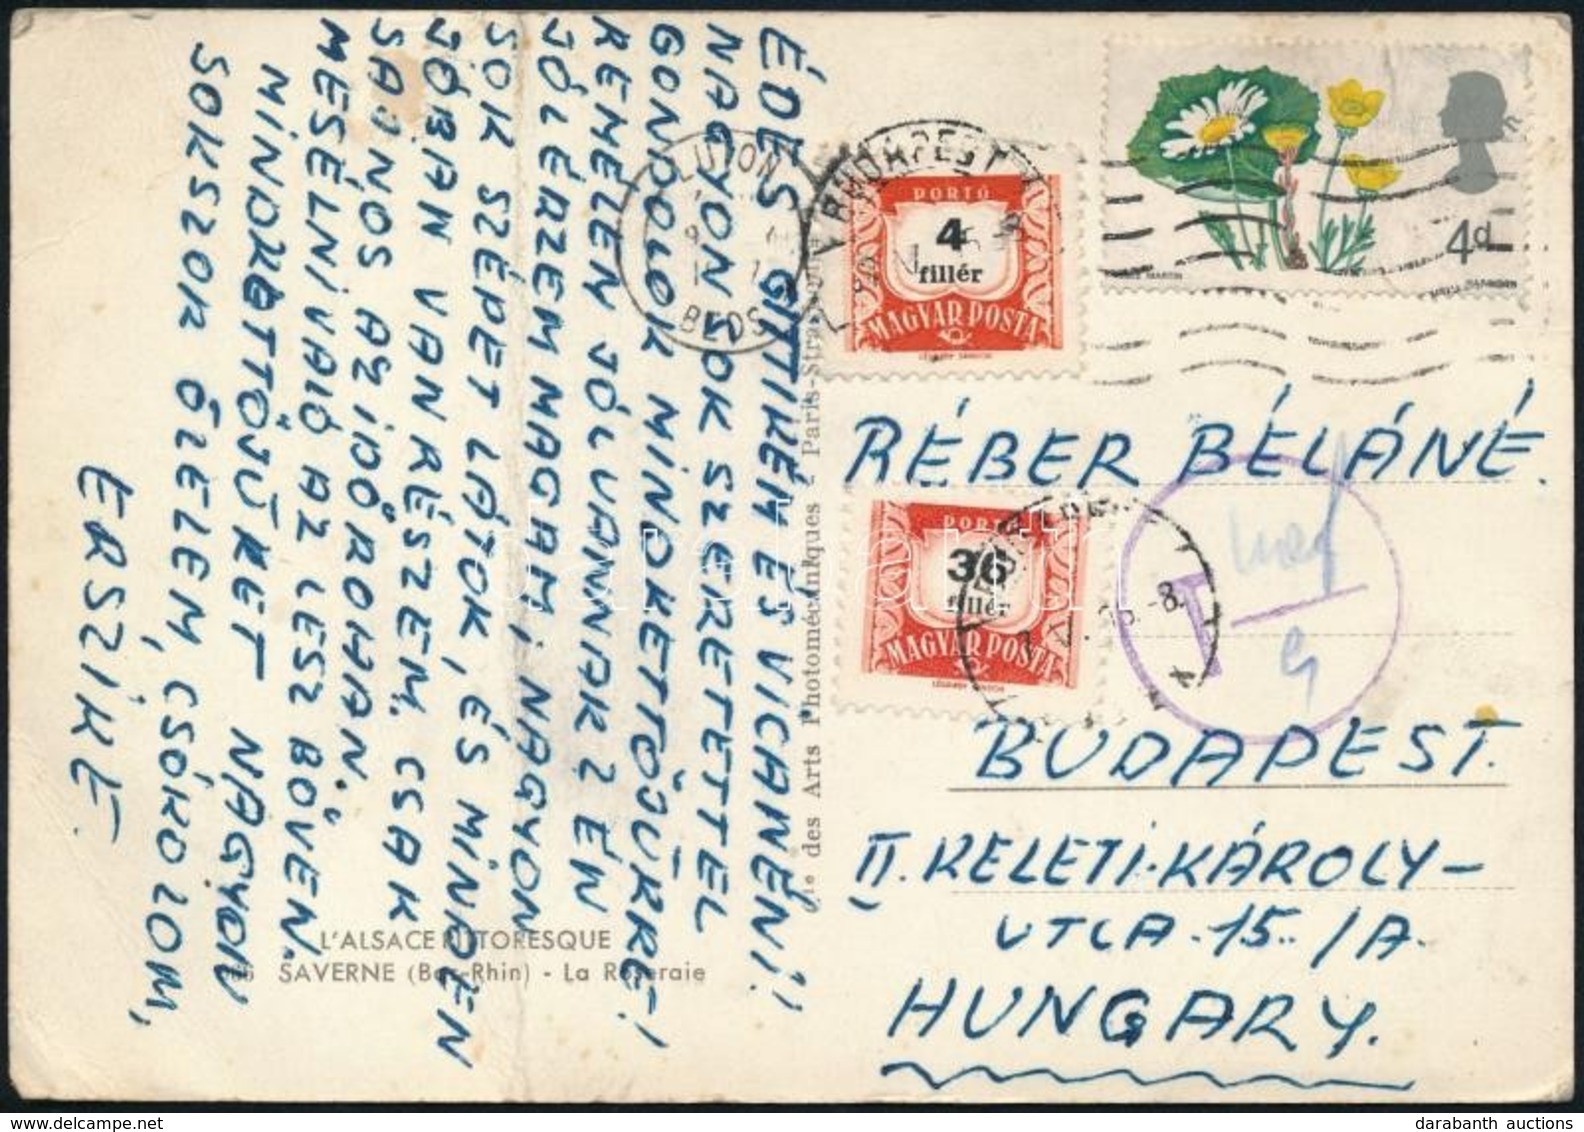 ÉDES GITTIKÉM ÉS VICANÉNI!
NAGYON SOK SZERETETTEL
GONDOLOK MINDKETTŐJÜKRE!
REMÉLEM JÓL VANNAK? ÉN
JÓL ÉRZEM MAGAM, NAGYON
SOK SZÉPET LÁTOK, ÉS MINDEN
JÓBAN VAN RÉSZEM. CSAK
SAJNOS AZ IDŐ ROHAN."
MESÉLNIVALÓ AZ LESZ BŐVEN.
MINDKETTŐJÜKET NAGYON
SOKSZOR ÖLELEM, CSÓKOLOM,
ERSZIKE.
L'ALSACE PITTORESQUE
SAVERNE (Bas-Rhin) - La Roseraie
Cie des Arts Photomécaniques - Paris-Strasbourg
LUTON
BEDS
BUDAPEST
PORTÓ
4
fillér
MAGYAR POSTA
LÉGRÁDY SÁNDOR
4d
RÉBER BÉLÁNÉ.
PORTÓ
36
fillér
MAGYAR POSTA
LÉGRÁDY SÁNDOR
T
BUDAPEST.
II. KELETI-KÁROLY-
UTCA. 15./A.
HUNGARY.
darabanth
darabanth auctions